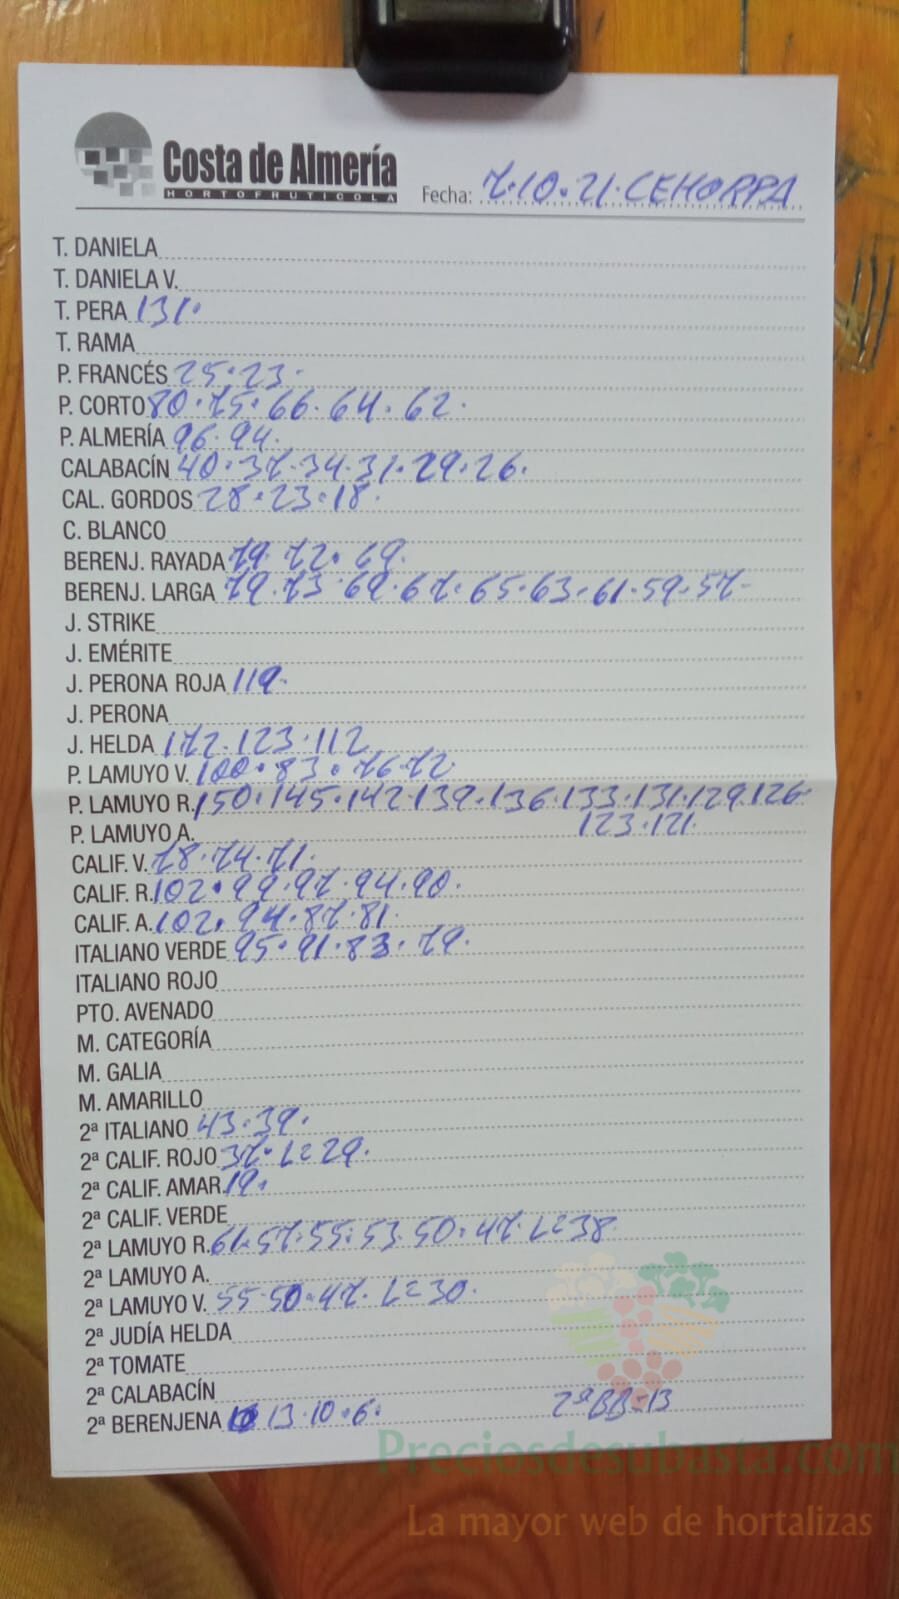 Costa de Almería
HORTOFRUTICOLA
Fecha: 7.10.21. CEHORPA
T. DANIELA
T. DANIELA V.
T. PERA 131.
T. RAMA
P. FRANCÉS 25.23.
P. CORTO 80.75.66.64.62.
P. ALMERÍA 96.94.
CALABACÍN 40.37.34.31.29.26.
CAL. GORDOS 28.23.18.
C. BLANCO
BERENJ. RAYADA 79.72.69.
BERENJ. LARGA 79.73.69.67.65.63.61.59.57-
J. STRIKE
J. EMÉRITE
J. PERONA ROJA 119.
J. PERONA
J. HELDA 172.123.112
P. LAMUYO V. 100.83.76.72.
P. LAMUYO R. 150.145.142.139.136.133.131.129.126.
P. LAMUYO A. 123.121.
CALIF. V. 78.74.71.
CALIF. R. 102.99.97.94.90.
CALIF. A. 102.94.87.81.
ITALIANO VERDE 95.91.83.79.
ITALIANO ROJO
PTO. AVENADO
M. CATEGORÍA
M. GALIA
M. AMARILLO
2ª ITALIANO 43.39.
2ª CALIF. ROJO 37. L=29.
2ª CALIF. AMAR. 19.
2ª CALIF. VERDE
2ª LAMUYO R. 61.57.55.53.50.47. L=38
2ª LAMUYO A.
2ª LAMUYO V. 55.50.47. L=30.
2ª JUDÍA HELDA
2ª TOMATE
2ª CALABACÍN
2ª BERENJENA 13.10.6. 2ª BB=13
Preciosdesubasta.com
La mayor web de hortalizas